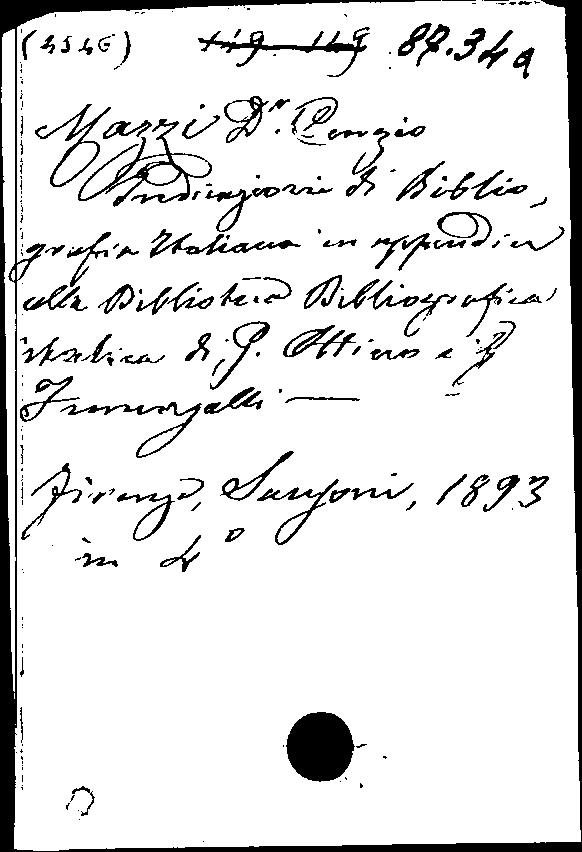 (4546) 149. 149 87.34 a
Mazzi Dr. Curzio
Indicazioni di Biblio,
grafia Italiana in appendice
alla Biblioteca Bibliografica
italica di G. Ottino e G
Fumagalli —
Firenze, Sansoni, 1893
in 4°